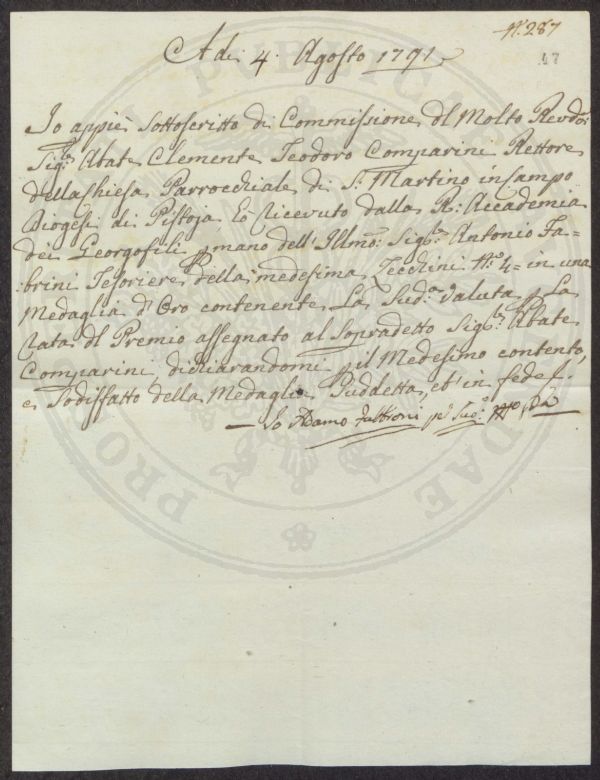 N.° 287
47
A dì 4. Agosto 1791
Io appiè Sottoscritto di Commissione del Molto Revdo:
Sig.r Abate Clemente Teodoro Comparini Rettore
della Chiesa Parrocchiale di S. Martino in Campo
Diogesi di Pistoja, ho ricevuto dalla R: Accademia
dei Georgofili p mano dell' Illmo: Sig.r Antonio Fa=
brini Tesoriere della medesima Zecchini N.° 4= in una
Medaglia d'Oro contenente La Sud.a Valuta, p La
rata del Premio assegnato al Sopradetto Sig.r Abate
Comparini, dichiarandomi p il Medesimo contento,
e Sodisfatto della Medaglia Suddetta, et in fede
— Io Adamo Fabbroni
PUBLICAE